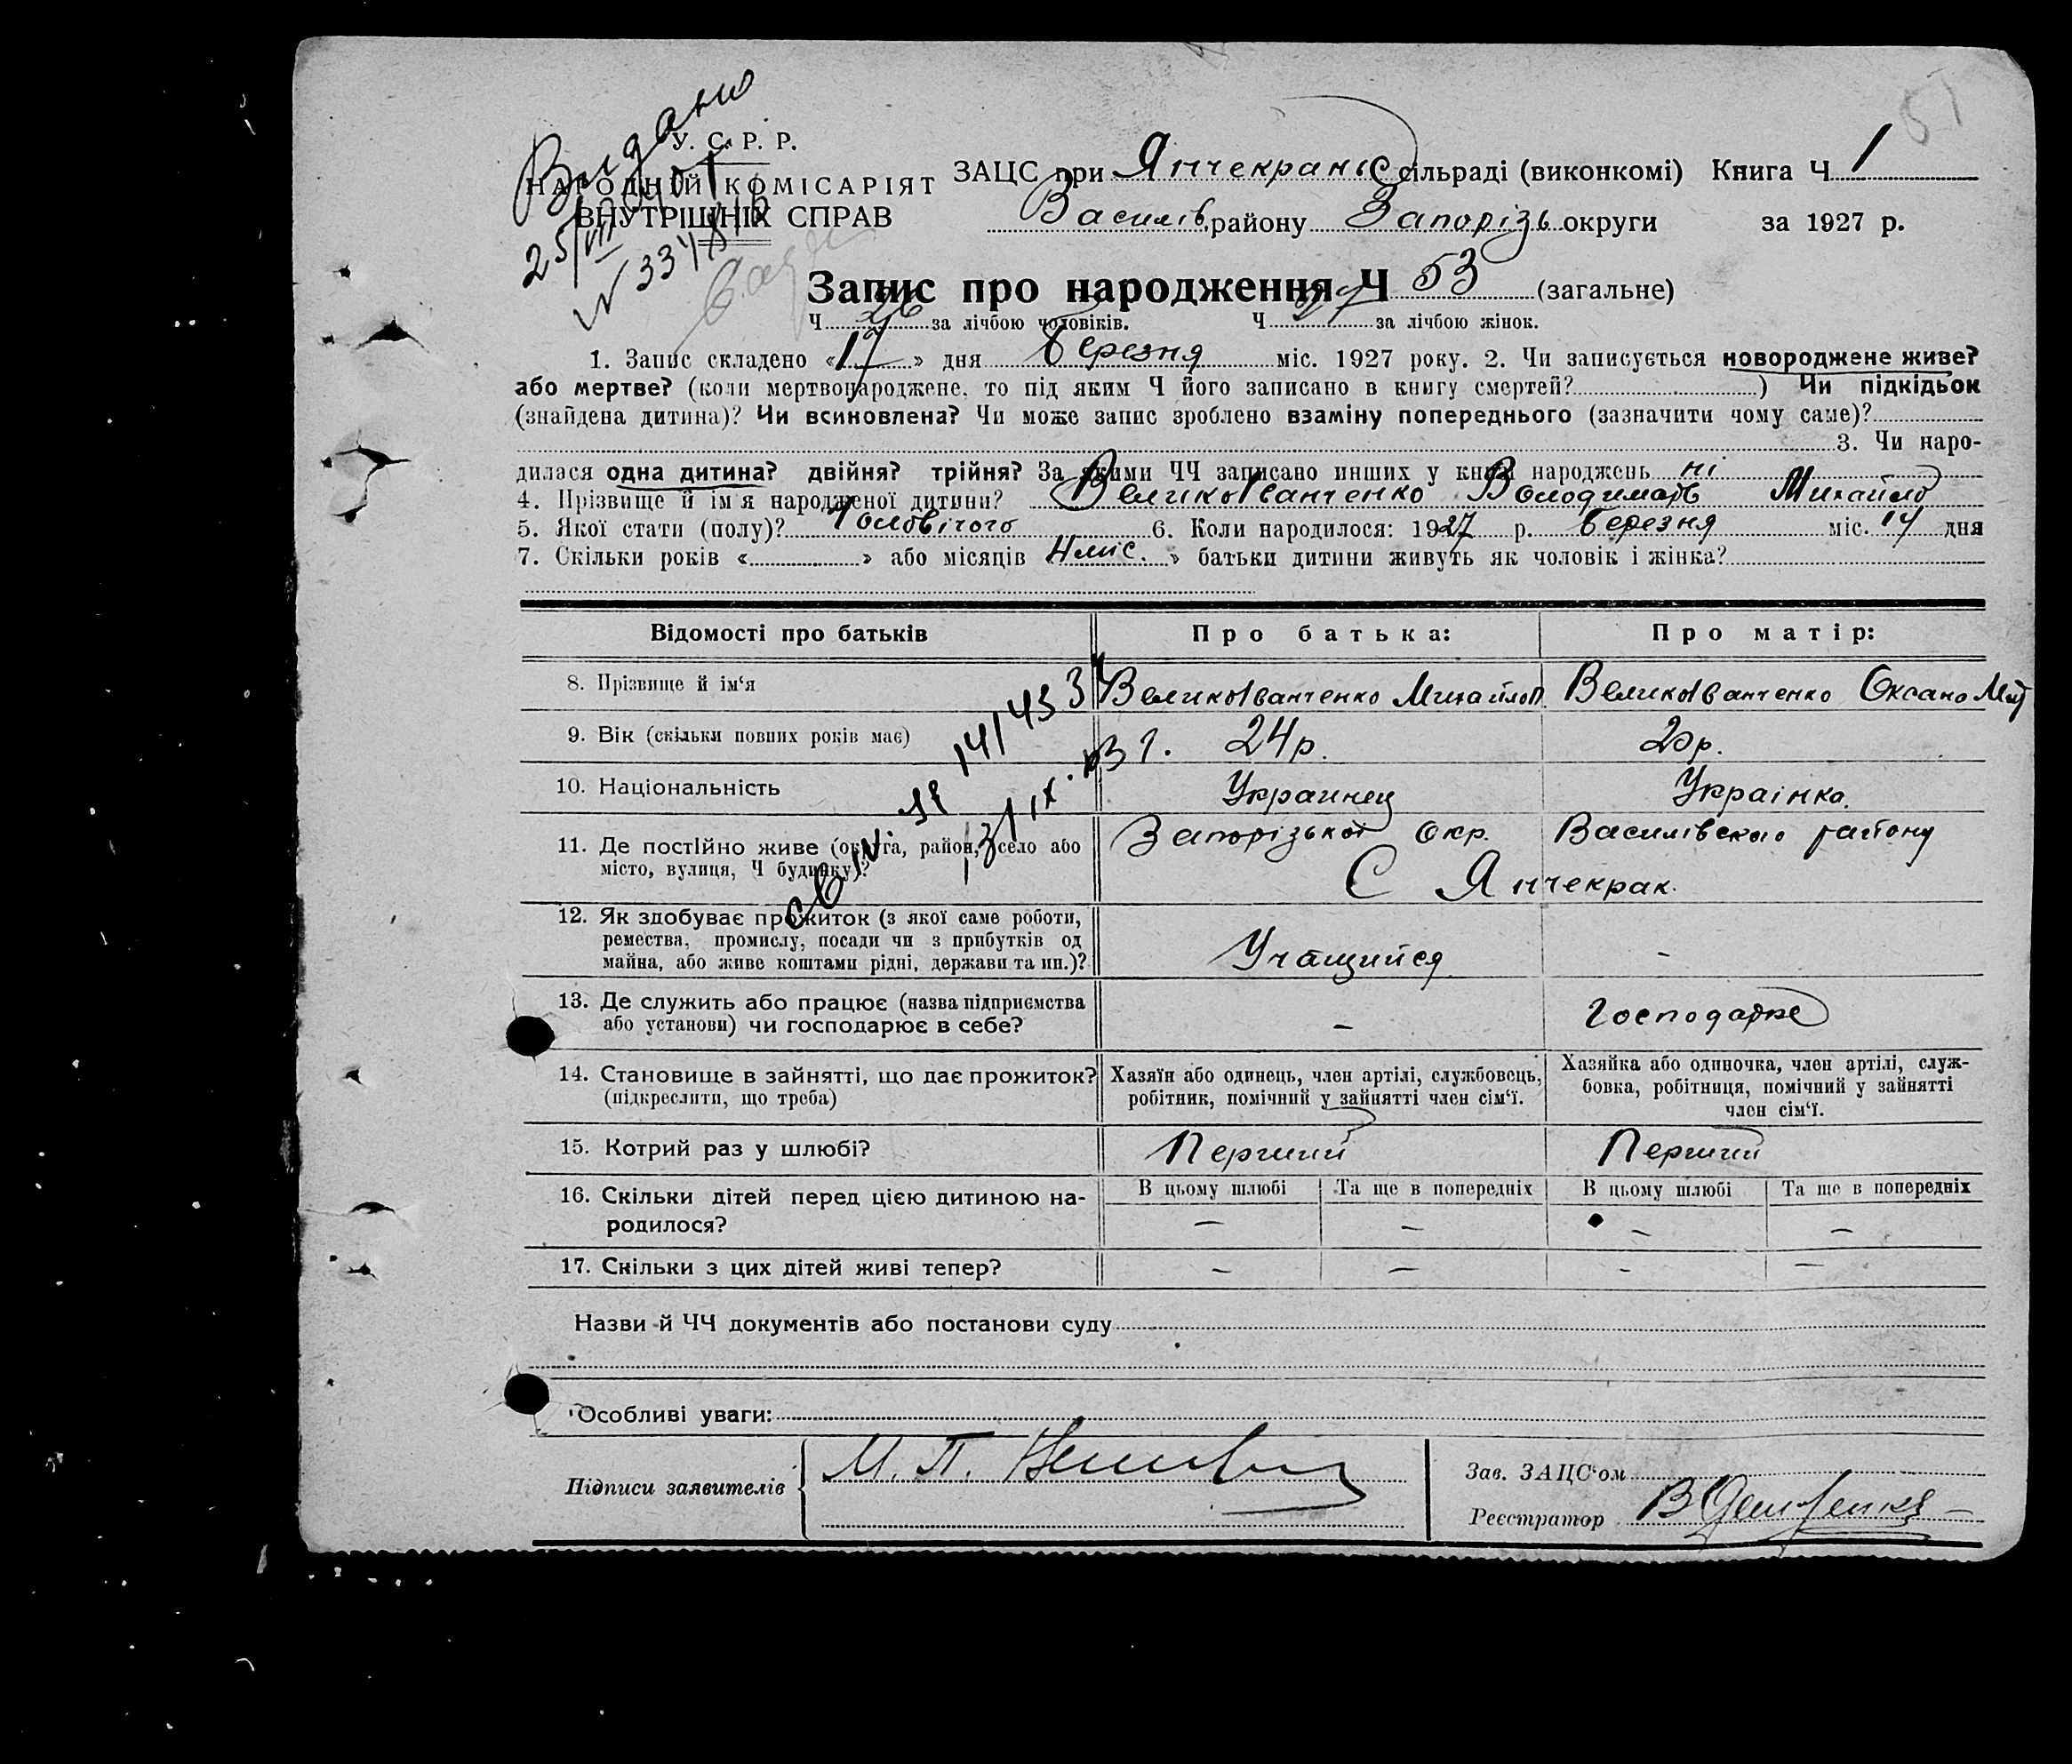 Видано
У. С. Р. Р.
НАРОДНІЙ КОМІСАРІЯТ
ВНУТРІШНІХ СПРАВ
25/VIII
ЗАЦС при Янчекранс сільраді (виконкомі) Книга Ч 1
Василів. району Запорізь округи за 1927 р.
Запис про народження Ч 53 (загальне)
Ч 26 за лічбою чоловіків. Ч 27 за лічбою жінок.
1. Запис складено «17» дня березня міс. 1927 року. 2. Чи записується новороджене живе?
або мертве? (коли мертвонароджене, то під яким Ч його записано в книгу смертей? ) Чи підкідьок
(знайдена дитина)? Чи всиновлена? Чи може запис зроблено взаміну попереднього (зазначити чому саме)?
3. Чи наро-
дилася одна дитина? двійня? трійня? За якими ЧЧ записано инших у книзі народжень ні
4. Прізвище й ім'я народженої дитини? ВеликоІванченко Володимать Михайло
5. Якої стати (полу)? Чоловічого 6. Коли народилося: 1927 р. березня міс. 14 дня
7. Скільки років « » або місяців « міс. » батьки дитини живуть як чоловік і жінка?
Відомості про батьків Про батька: Про матір:
8. Прізвище й ім'я ВеликоІванченко Михайло П. ВеликоІванченко Оксана
9. Вік (скільки повних років має) 24 р. 20 р.
10. Національність Украинец Українка.
11. Де постійно живе (округа, район, село або Запорізькой Окр. Василівского району
місто, вулиця, Ч будинку)? С Янчекрак.
12. Як здобуває прожиток (з якої саме роботи,
ремества, промислу, посади чи з прибутків од
майна, або живе коштами рідні, держави та ин.)? Учащийся –
13. Де служить або працює (назва підприємства
або установи) чи господарює в себе? – Господарке
14. Становище в зайнятті, що дає прожиток? Хазяїн або одинець, член артілі, службовець, Хазяйка або одиночка, член артілі, служ-
(підкреслити, що треба) робітник, помічний у зайнятті член сім'ї. бовка, робітниця, помічний у зайнятті
член сім'ї.
15. Котрий раз у шлюбі? Перший Перший
16. Скільки дітей перед цією дитиною на- В цьому шлюбі Та ще в попередніх В цьому шлюбі Та ще в попередніх
родилося? – – – –
17. Скільки з цих дітей живі тепер? – – – –
Назви й ЧЧ документів або постанови суду
Особливі уваги:
Підписи заявителів М. П.
Зав. ЗАЦС'ом
Реєстратор В